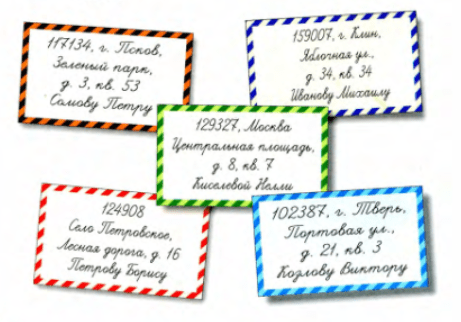 117134, г. Псков,
Зеленый парк,
д. 3, кв. 53
Сомову Петру
159007, г. Клин,
Яблочная ул.,
д. 34, кв. 34
Иванову Михаилу
129327, Москва
Центральная площадь,
д. 8, кв. 7
Киселевой Нелли
124908
Село Петровское,
Лесная дорога, д. 16
Петрову Борису
102387, г. Тверь,
Портовая ул.,
д. 21, кв. 3
Козлову Виктору